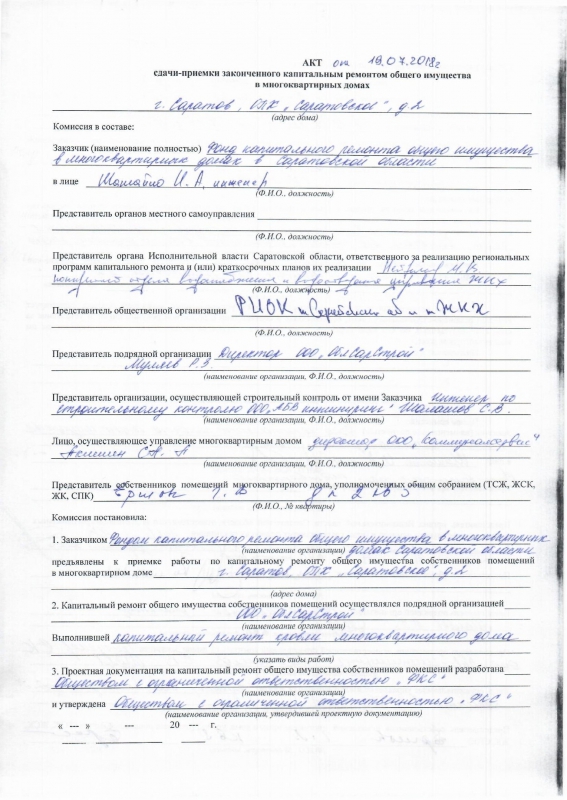 АКТ от 19.07.2018г
сдачи-приемки законченного капитальным ремонтом общего имущества
в многоквартирных домах
г. Саратов, ОПК „Саратовское", д.2
(адрес дома)
Комиссия в составе:
Заказчик (наименование полностью) Фонд капитального ремонта общего имущества
в многоквартирных домах в Саратовской области
в лице И.А, инженер
(Ф.И.О., должность)
Представитель органов местного самоуправления
(Ф.И.О., должность)
Представитель органа Исполнительной власти Саратовской области, ответственного за реализацию региональных
программ капитального ремонта и (или) краткосрочных планов их реализации
отдела управления ЖКХ
(Ф.И.О., должность)
Представитель общественной организации
(Ф.И.О., должность)
Представитель подрядной организации Директор ООО „ОблСарСтрой"
Р.З.
(наименование организации, Ф.И.О., должность)
Представитель организации, осуществляющей строительный контроль от имени Заказчика инженер по
строительному контролю ООО „АБВ инжиниринг" Шалашов С.В.
(наименование организации, Ф.И.О., должность)
Лицо, осуществляющее управление многоквартирным домом директор ООО „Коммуналсервис"
(наименование организации, Ф.И.О., должность)
Представитель собственников помещений многоквартирного дома, уполномоченных общим собранием (ТСЖ, ЖСК,
ЖК, СПК)
(Ф.И.О., № квартиры)
Комиссия постановила:
1. Заказчиком Фондом капитального ремонта общего имущества в многоквартирных
(наименование организации) домах Саратовской области
предъявлены к приемке работы по капитальному ремонту общего имущества собственников помещений
в многоквартирном доме г. Саратов, ОПК „Саратовское", д.2
(адрес дома)
2. Капитальный ремонт общего имущества собственников помещений осуществлялся подрядной организацией
ООО „ОблСарСтрой"
(наименование организации)
Выполнившей капитальный ремонт кровли многоквартирного дома
(указать виды работ)
3. Проектная документация на капитальный ремонт общего имущества собственников помещений разработана
Обществом с ограниченной ответственностью „ФКС"
(наименование организации)
и утверждена Обществом с ограниченной ответственностью „ФКС"
(наименование организации, утвердившей проектную документацию)
« --- » --- 20 --- г.